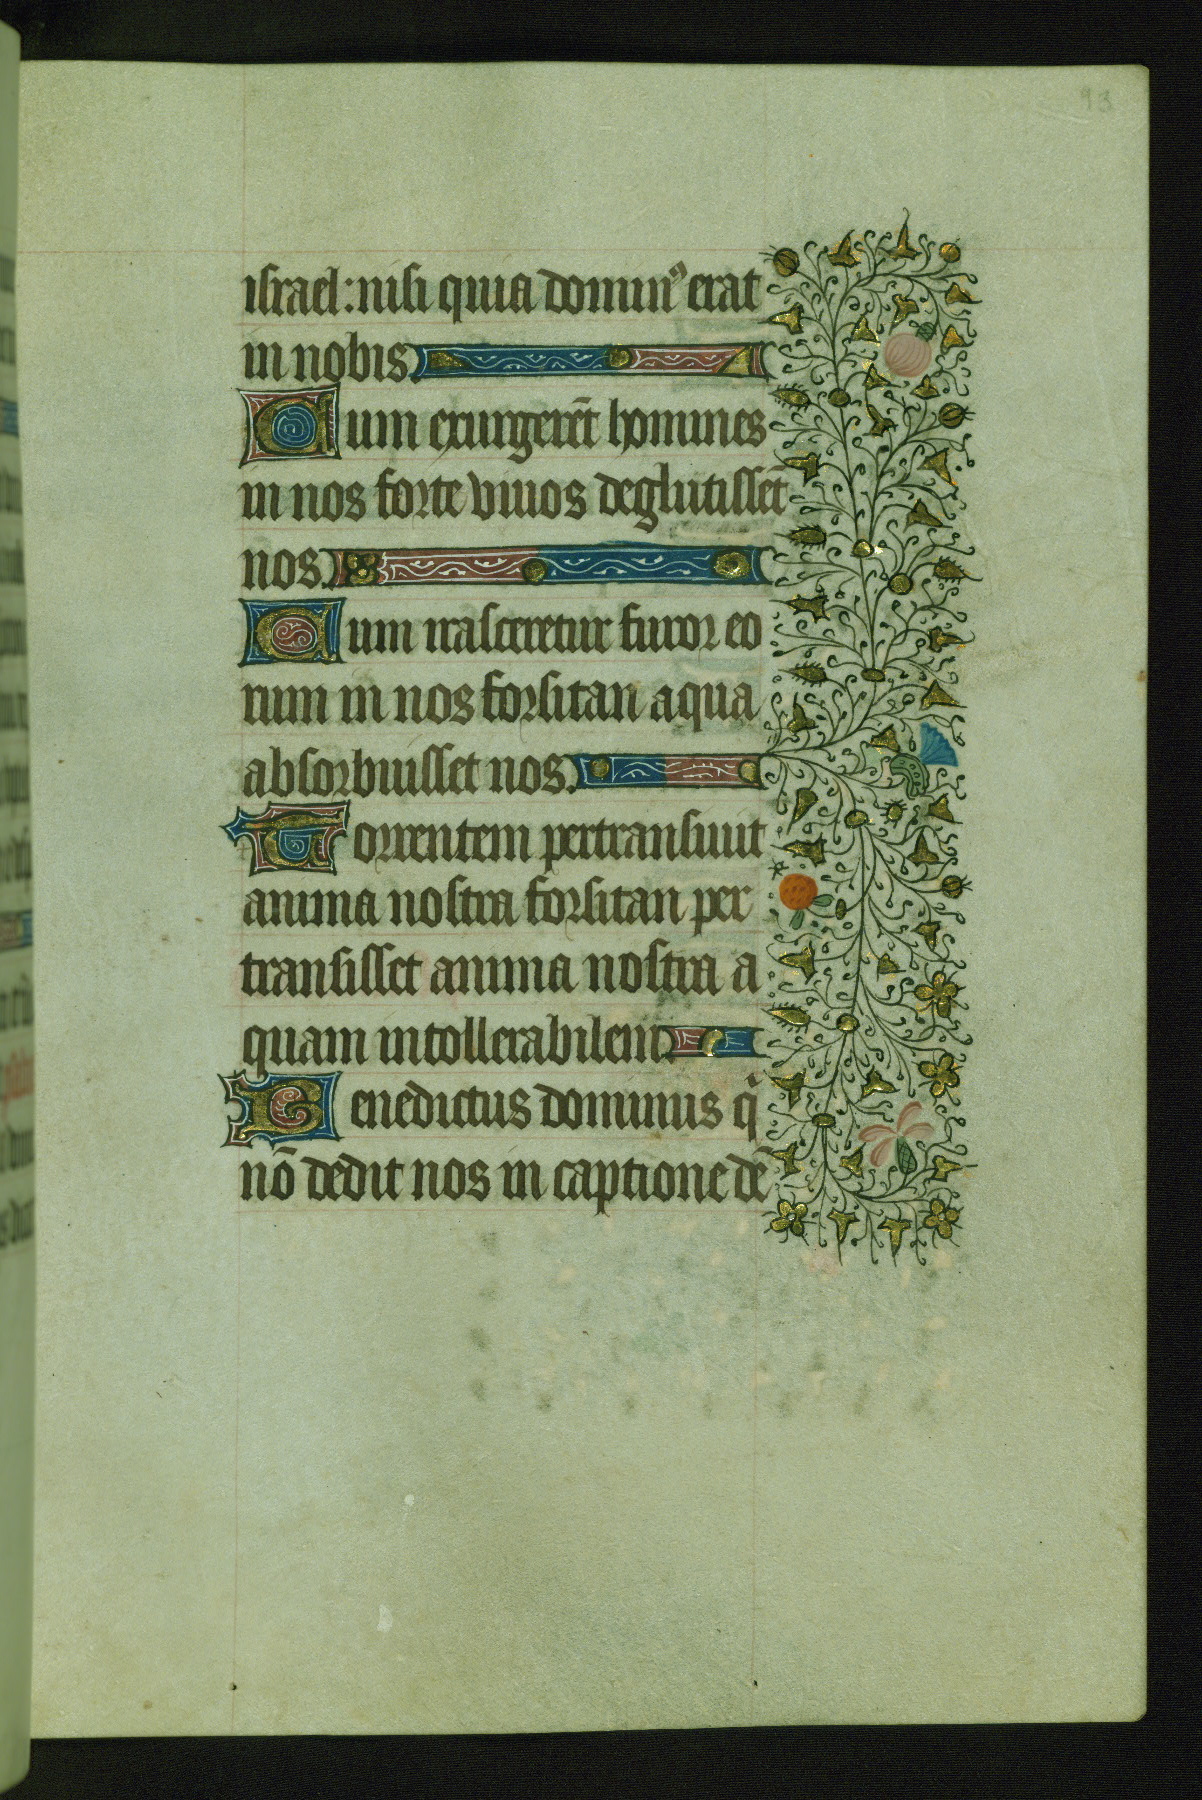 93
israel: nisi quia dominꝰ erat
in nobis.
Cum exurgerēt homines
in nos forte viuos deglutissēt
nos.
Cum irasceretur furor eo
rum in nos forsitan aqua
absorbuisset nos.
Torrentem pertransiuit
anima nostra forsitan per
transisset anima nostra a
quam intollerabilem.
Benedictus dominus q̄
nō dedit nos in captione dē